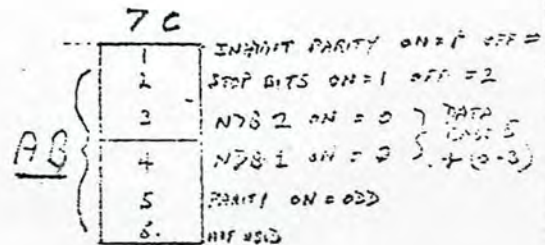 7C
1 INHIBIT PARITY ON=1 OFF=
2 STOP BITS ON=1 OFF=2
3 NDB 2 ON = 0 DATA
AB
4 NDB 1 ON = 0 + (0-3)
5 PARITY ON = ODD
6. NOT USED